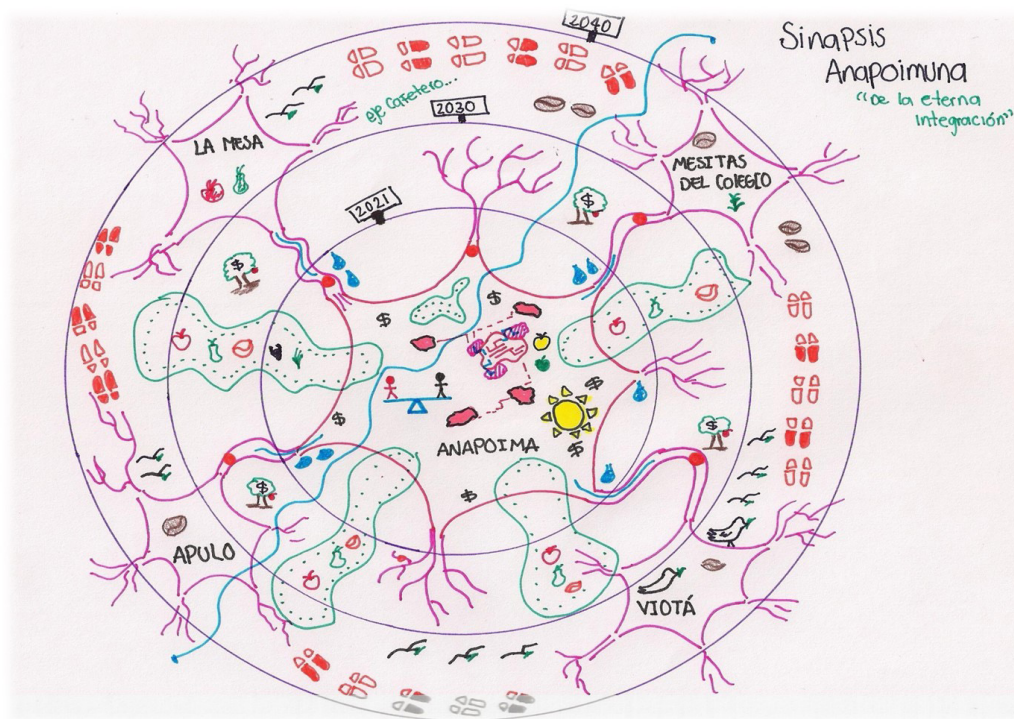 Sinapsis
Anapoimuna
"De la eterna
integración"
2040
eje cafetero...
2030
LA MESA
MESITAS
DEL COLEGIO
2021
$
$
$
$
$
ANAPOIMA
$
$
$
$
$
APULO
VIOTÁ